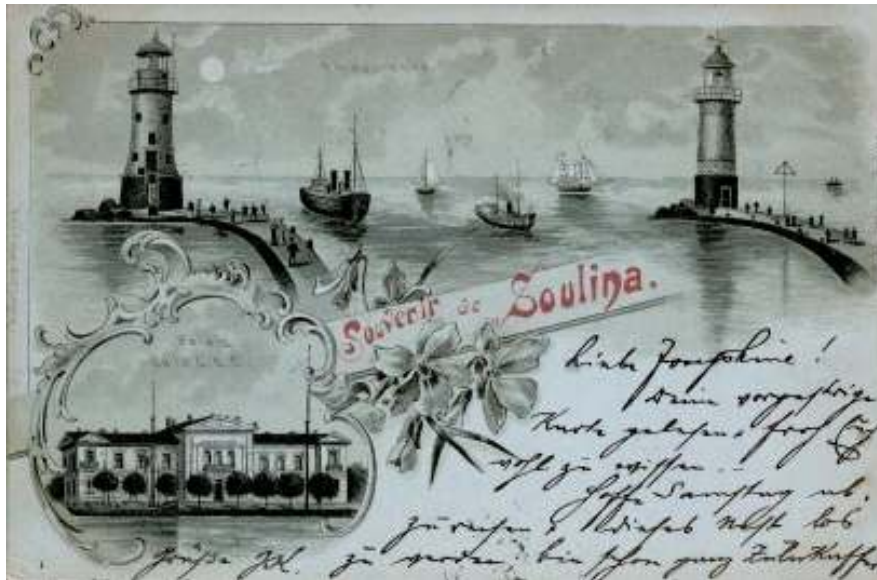 Souvenir de Soulina.
Liebe Josephine!
Deine vorgestrige
Karte gelesen, froh Euch
wohl zu wissen.
Hoffe Samstag ab
zureisen & dieses Nest los
Grüße
zu werden, bin schon ganz